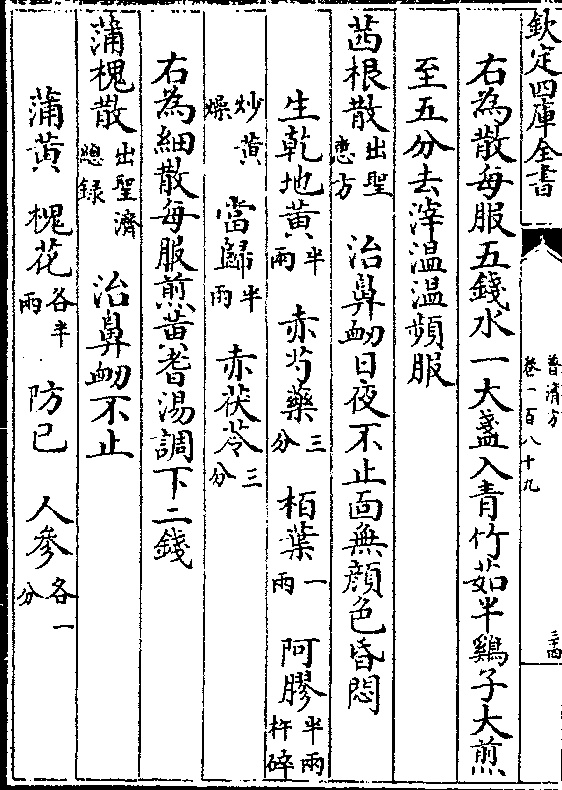 欽定四庫全書
普濟方
卷一百八十九
三十四
右為散每服五錢水一大盞入青竹茹半鷄子大煎
至五分去滓温温頻服
茜根散出聖惠方 治鼻衂日夜不止面無顔色昏悶
生乾地黄半兩 赤芍藥三分 栢葉一兩 阿膠半兩杵碎
炒黄燥 當歸半兩 赤茯苓三分
右為細散每服煎黄耆湯調下二錢
蒲槐散出聖濟總録 治鼻衂不止
蒲黄 槐花各半兩 防已 人參各一分